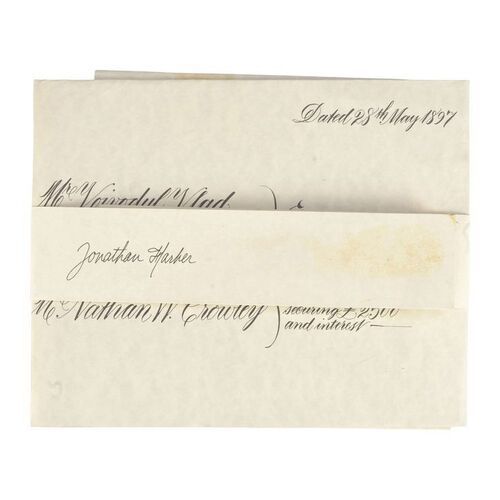 Dated 28th May 1897
Mr Voivodul Vlad
Jonathan Harker
Mr. Nathan W. Crowley
securing £2500
and interest